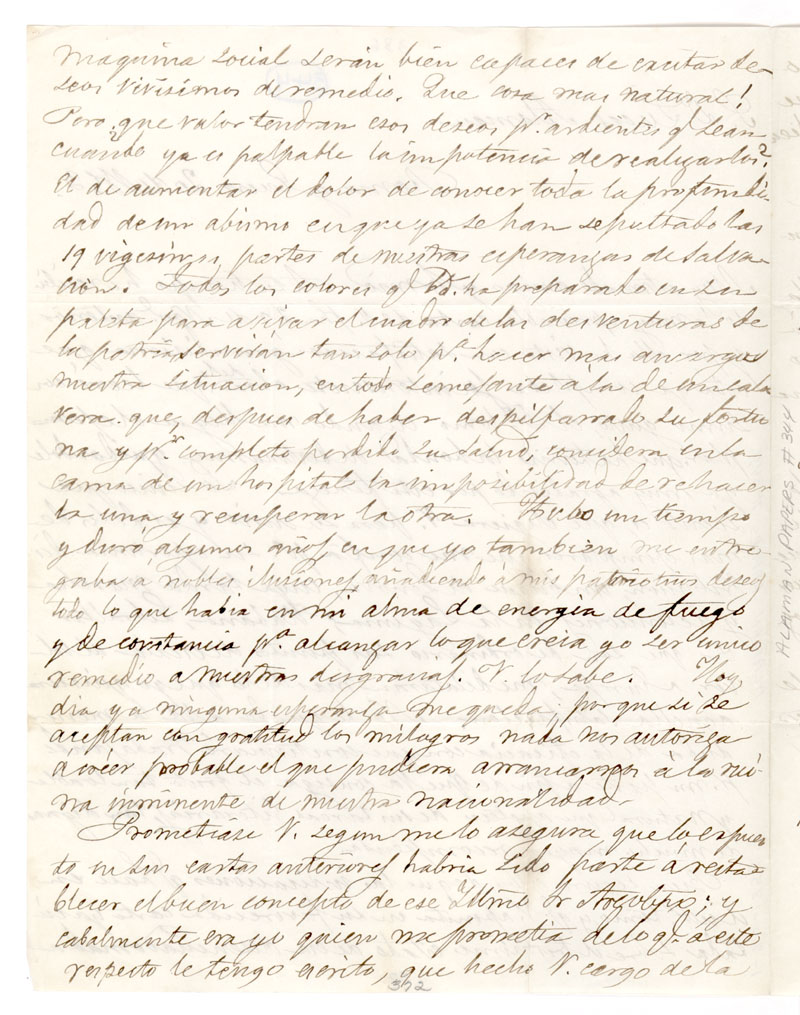 maquina social serán bien capaces de excitar de-
seos vivisimos de remedio. Que cosa mas natural!
Pero ¿que valor tendran esos deseos pr. ardientes q. sean
cuando ya es palpable la impotencia de realizarlos?
El de aumentar el dolor de conocer toda la profundi-
dad de un abismo en que ya se han sepultado las
19 vigesimas partes de nuestras esperanzas de salva-
cion. Todos los colores q. Vd. ha preparado en su
paleta para avivar el cuadro de las desventuras de
la patria, servirán tan solo pa. hacer mas amarga
nuestra situacion, en todo semejante á la de un cala
vera que, despues de haber despilfarrado su fortu
na y pr. completo perdido su salud, considera en la
cama de un hospital la imposibilidad de rehacer
la una y recuperar la otra. Hubo un tiempo
y duró algunos años en que yo tambien me entre
gaba á nobles ilusiones, añadiendo á mis patrioticos deseos
todo lo que habia en mi alma de energia de fuego
y de constancia pa. alcanzar lo que creia yo ser unico
remedio a nuestras desgracias. V. lo sabe. Hoy
dia ya ninguna esperanza me queda, porque si se
aceptan con gratitud los milagros nada nos autoriza
á creer probable el que pudiera arrancarnos á la rui-
na inminente de nuestra nacionalidad.
Prometiase V. segun me lo asegura que lo espues
to en sus cartas anteriores habria sido parte á resta-
blecer el buen concepto de ese Illmo Sr ; y
cabalmente era yo quien me prometia de lo q. á este
respecto le tengo escrito, que hecho V. cargo de la
372
ALAMAN PAPERS # 344